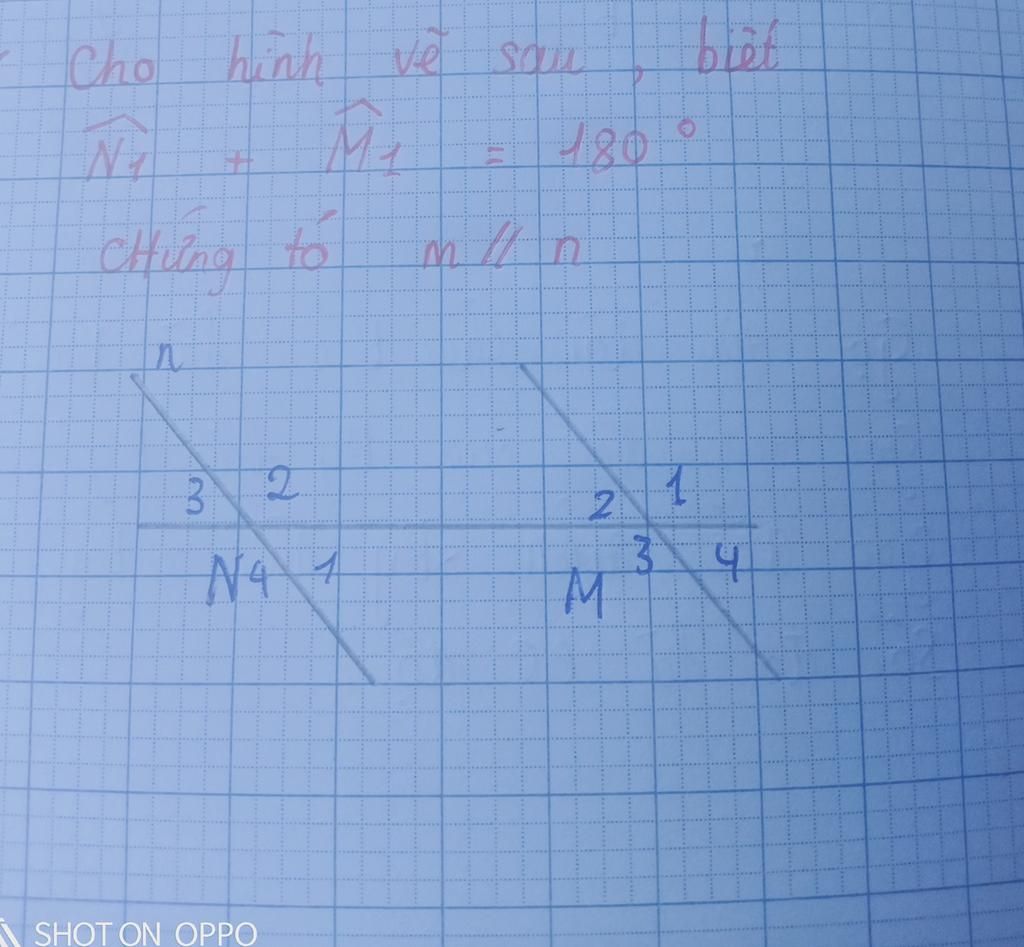 Cho hình vẽ sau, biết
N̂1 + M̂1 = 180°
Chứng tỏ m // n
n
3 2
2 1
N4 1
M 3 4
SHOT ON OPPO